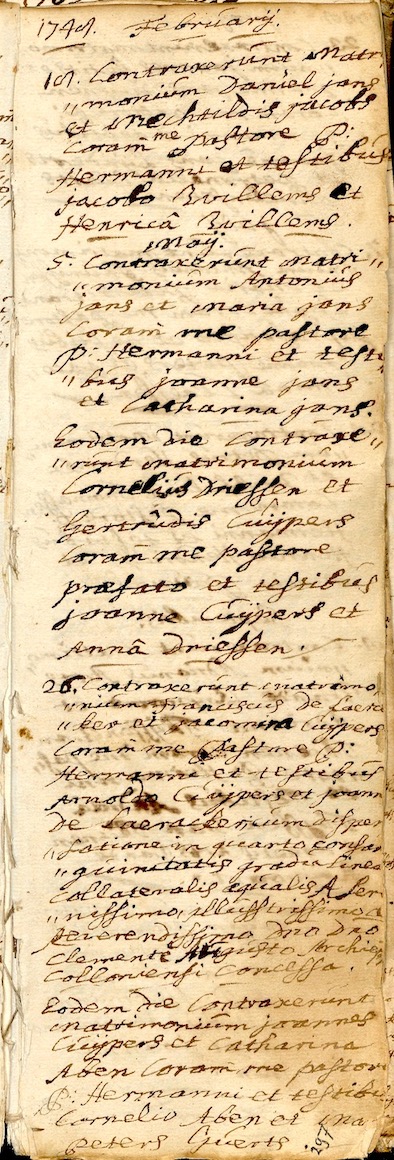 1748. Februarij.
18. Contraxerunt Matri
"monium Daniel jans
et Mechtildis jacobs
Coram me pastore P:
Hermanni et testibus
jacobo Willems et
Henricâ Willems.
Maij.
5. Contraxerunt matri"
"monium Antonius
jans et maria jans
Coram me pastore
P: Hermanni et testi"
"bus joanne jans
et Catharina jans.
Eodem die Contraxe"
"runt matrimonium
Cornelius Driessen et
Gertrudis Cuÿpers
Coram me pastore
præfato et testibus
joanne Cuÿpers et
Annâ Driessen.
26. Contraxerunt matrimo
"nium franciscus de Laere
"ker et jacomina Cuÿpers
Coram me Pastore P:
Hermanni et testibus
Arnoldo Cuÿpers et joann
De Laeracker cum dispen
"satione in quarto consan
"guinitatis gradu linea
Collateralis æqualis A Ser
"nissimo, illustrissimo a
Reverendissimo Dno Dno
Clemente Augusto Archiep
Colloniensi Concessa.
Eodem die Contraxerunt
matrimonium joannes
Cuÿpers et Catharina
Aben Coram me pastor
P: Hermanni et testibu
Cornelio Aben et ma
peters Geerts.
297